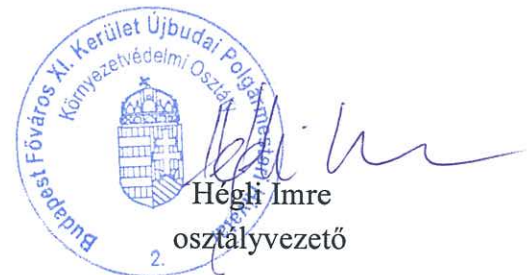 Budapest Főváros XI. Kerület Újbudai Polgármesteri Hivatal
Környezetvédelmi Osztály
2.
Hégli Imre
osztályvezető